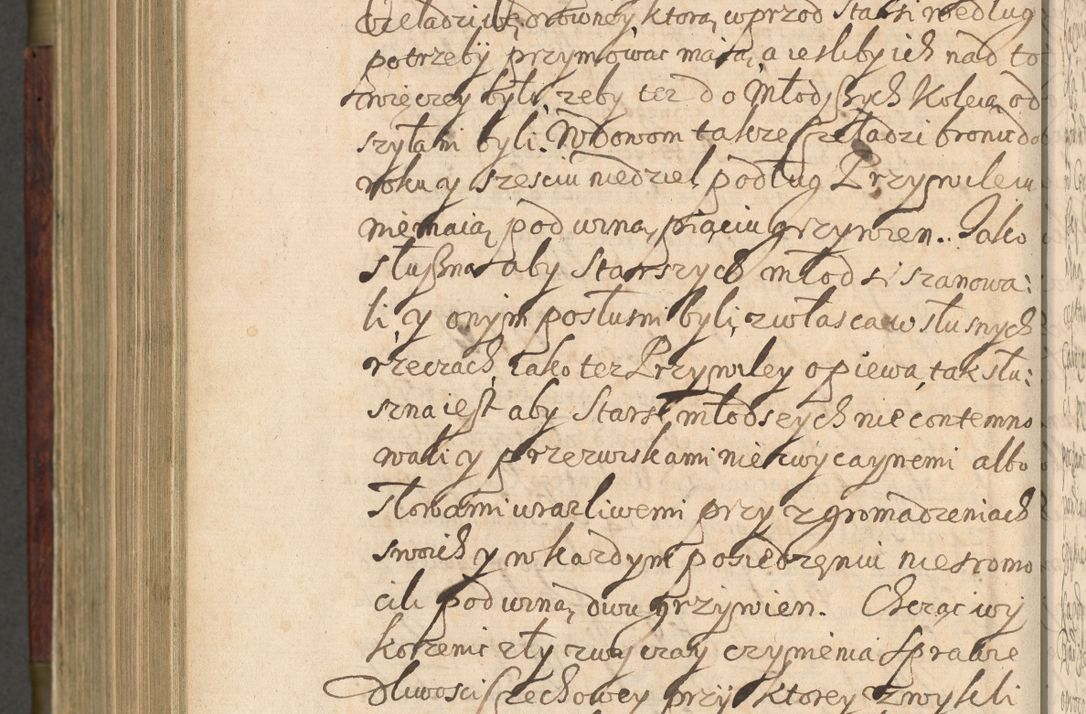 Czeladzi wędrowney ktorą, wprzod Starsi według
potrzebÿ przymowac maią, a iesliby ich nad to
więcey byli, zeby tez do Młodszych Koleią od
szyłani byli. Wdowom takze Czeladzi bronic do
roku y szesciu niedziel, podług Przywileiu
niemaią, pod winą, piąciu grzywien. Jako
słuszna aby Starszych młodsi szanowa:
li, y onym posłusni byli, zwłascza w słusnych
rzeczach, iako tez Przywiley opiewa, tak słu:
szna iest aby Starsi młodszych nie contemno
wali y przezwiskami niezwyczaynemi albo
słowami urazliwemi przy zgromadzeniach
swoich y w kazdym posiedzęniu niesromo
cili pod winą, dwu grzywien. Chcąc wy
korzenic zły zwyczay czynienia Sprawie
dliwosci Czechowey przÿ ktorey zwykli